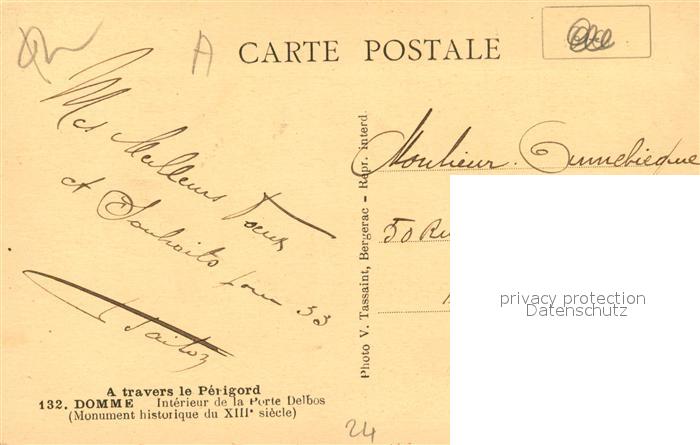 A
CARTE POSTALE
Mes Meilleurs Voeux
et Souhaits pour 33
Monsieur
50 Ru
privacy protection
Datenschutz
Photo V. Tassaint, Bergerac - Repr. interd.
A travers le Périgord
132. DOMME Intérieur de la Porte Delbos
(Monument historique du XIIIe siècle)
24